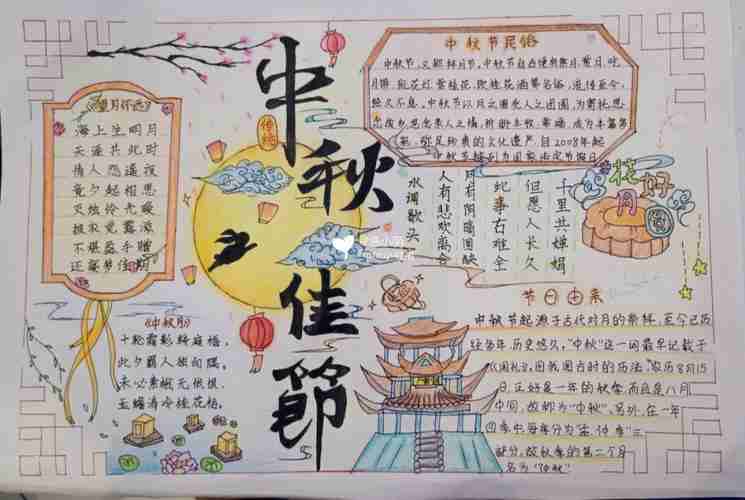 中秋佳節
传统
《望月怀远》
海上生明月
天涯共此时
情人怨遥夜
竟夕起相思
灭烛怜光暖
披衣觉露滋
不堪盈手赠
还寝梦佳期
《中秋月》
十轮霜影转庭梧,
此夕羁人独向隅。
未必素娥无怅恨,
玉蟾清冷桂花孤。
中秋节民俗
中秋节,又称拜月节,中秋节自古便有祭月、赏月、吃
月饼、玩花灯、赏桂花、饮桂花酒等名俗,流传至今,
经久不息。中秋节以月之圆兆人之团圆,为寄托思
念故乡,思念亲人之情,祈盼丰收、幸福,成为丰富多
彩、弥足珍贵的文化遗产。自2008年起
中秋节被列为国家法定节假日
水调歌头
人有悲欢离合
月有阴晴圆缺
此事古难全
但愿人长久
千里共婵娟
花好
月圆
节日由来
中秋节起源于古代对月的祭拜,至今已历
经数年,历史悠久,"中秋"这一词最早记载于
《周礼》,因我国古时的历法,"农历8月15
日,正好是一年的秋季,而且是八月
中间,故称为"中秋"。另外,在一年
四季中,每季分为"孟、仲、季"三
部分,故秋季的第二个月
名为"仲秋"